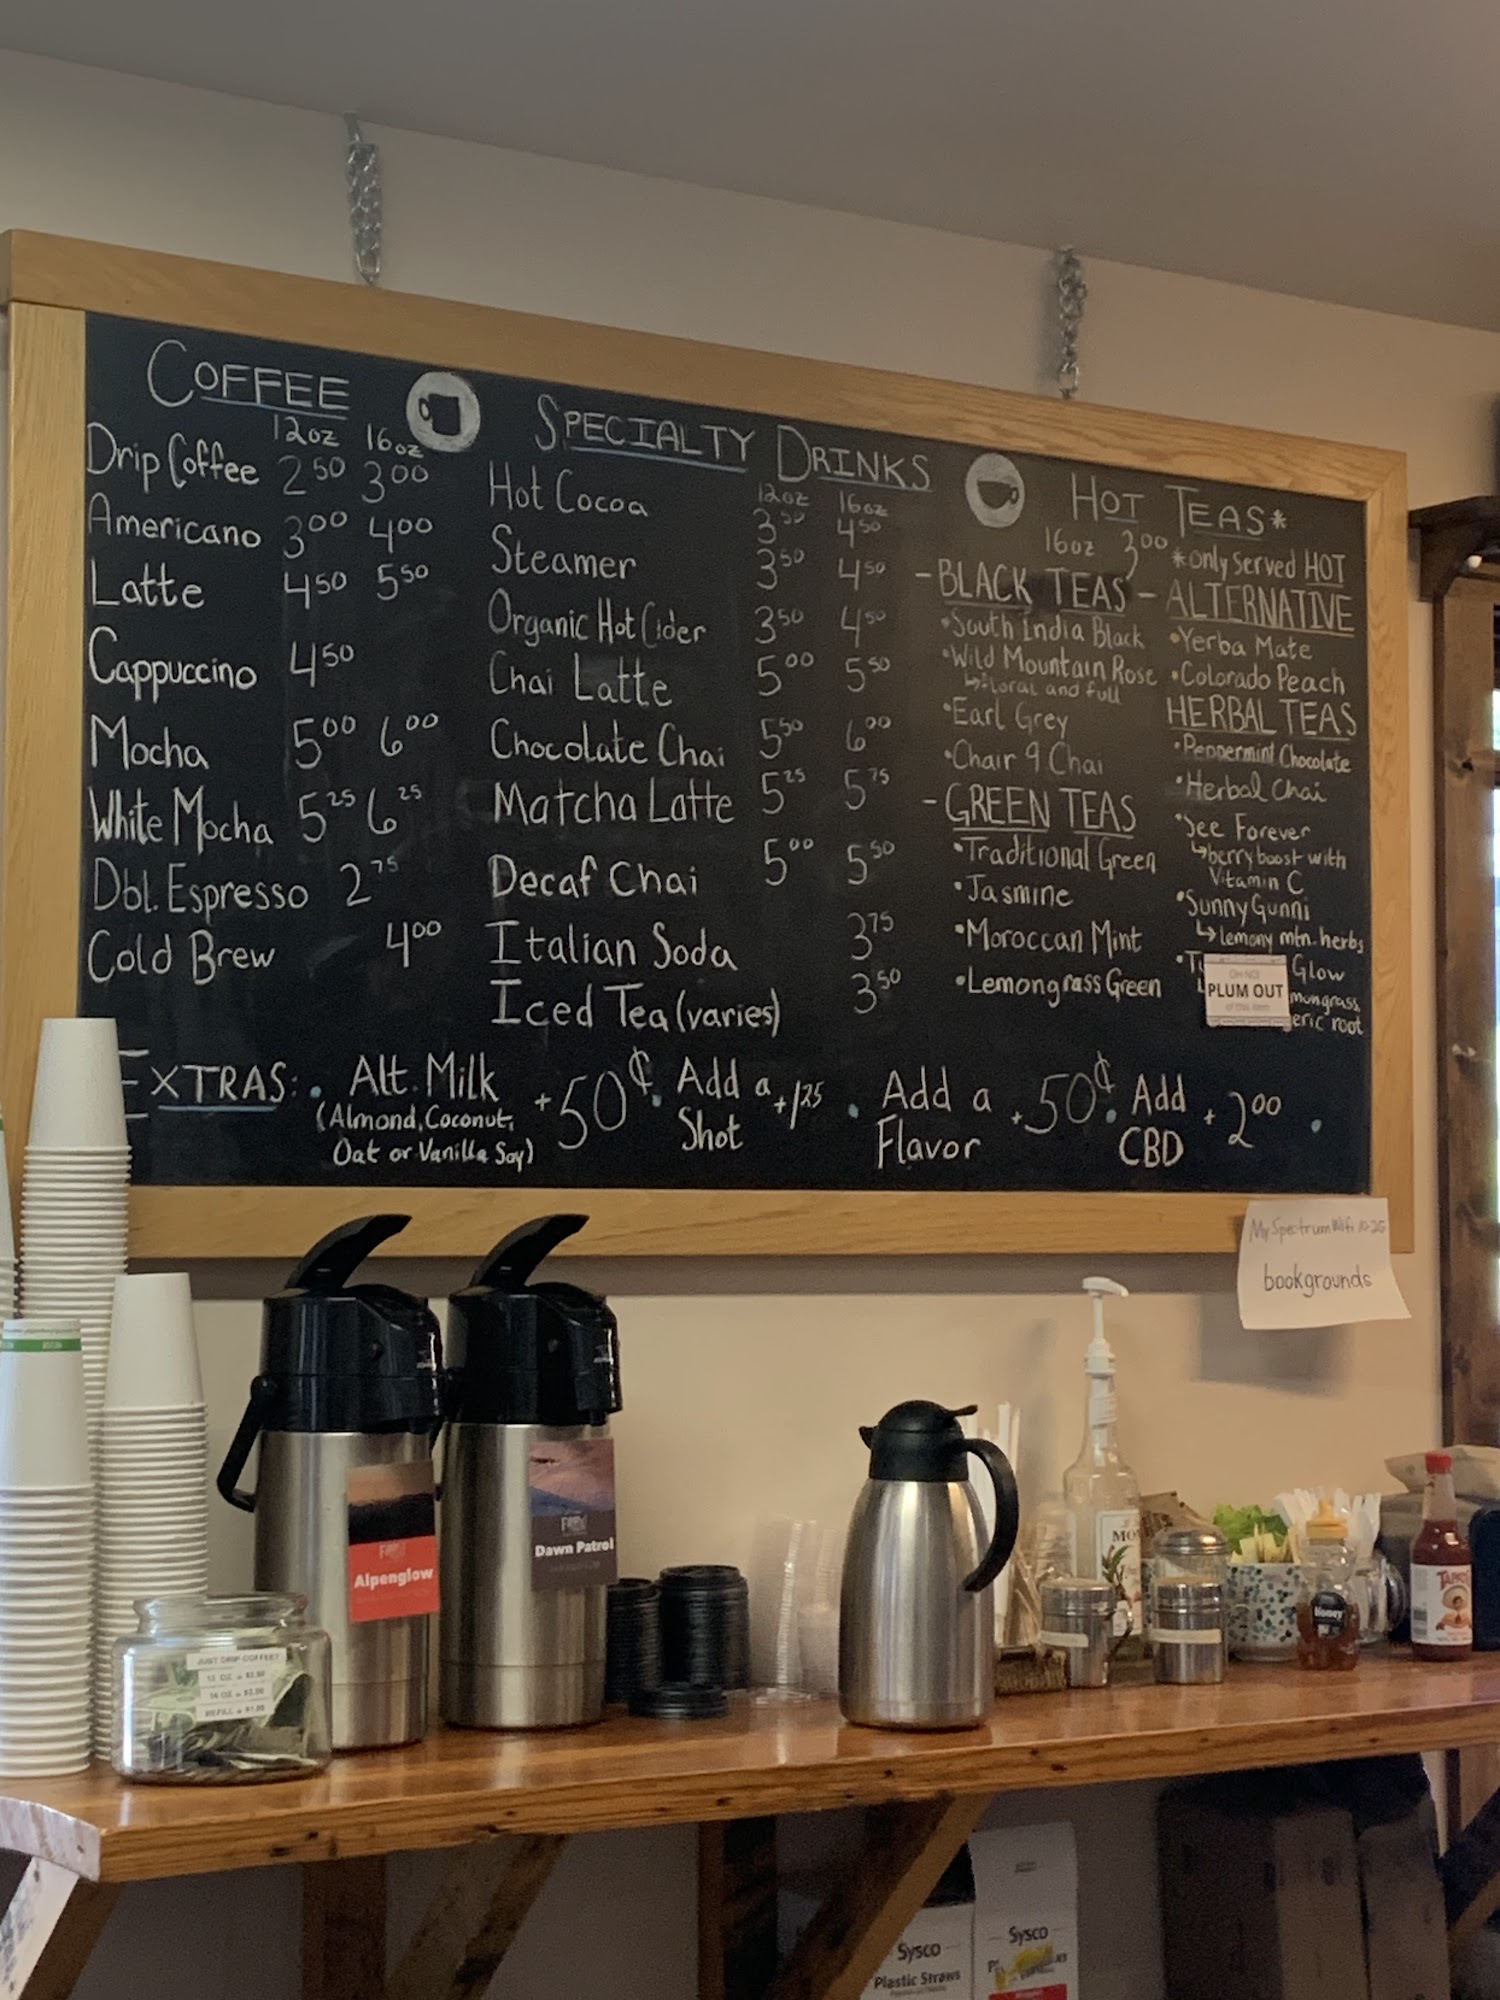 COFFEE
12oz 16oz
Drip Coffee 2 50 3 00
Americano 3 00 4 00
Latte 4 50 5 50
Cappuccino 4 50
Mocha 5 00 6 00
White Mocha 5 25 6 25
Dbl. Espresso 2 75
Cold Brew 4 00
SPECIALTY DRINKS
12oz 16oz
Hot Cocoa 3 50 4 50
Steamer 3 50 4 50
Organic Hot Cider 3 50 4 50
Chai Latte 5 00 5 50
Chocolate Chai 5 50 6 00
Matcha Latte 5 25 5 75
Decaf Chai 5 00 5 50
Italian Soda 3 75
Iced Tea (varies) 3 50
HOT TEAS*
16oz 3 00
*only served HOT
-BLACK TEAS-
•South India Black
•Wild Mountain Rose
↳floral and full
•Earl Grey
•Chair 9 Chai
-GREEN TEAS
•Traditional Green
•Jasmine
•Moroccan Mint
•Lemongrass Green
ALTERNATIVE
•Yerba Mate
•Colorado Peach
HERBAL TEAS
•Peppermint Chocolate
•Herbal Chai
•See Forever
↳berry boost with
Vitamin C
•Sunny Gunni
↳lemony mtn. herbs
Glow
OH NO!
PLUM OUT
of this item
root
EXTRAS:
• Alt. Milk +50¢
(Almond, Coconut,
Oat or Vanilla Soy)
• Add a Shot +1 25
• Add a Flavor +50¢
• Add CBD +2 00 •
MySpectrumWifi10-2G
bookgrounds
Alpenglow
Dawn Patrol
JUST DRIP COFFEE?
12 OZ = $2.50
16 OZ = $3.00
REFILL = $1.00
MO
Honey
TAPA
Sysco
Plastic Straws
Sysco